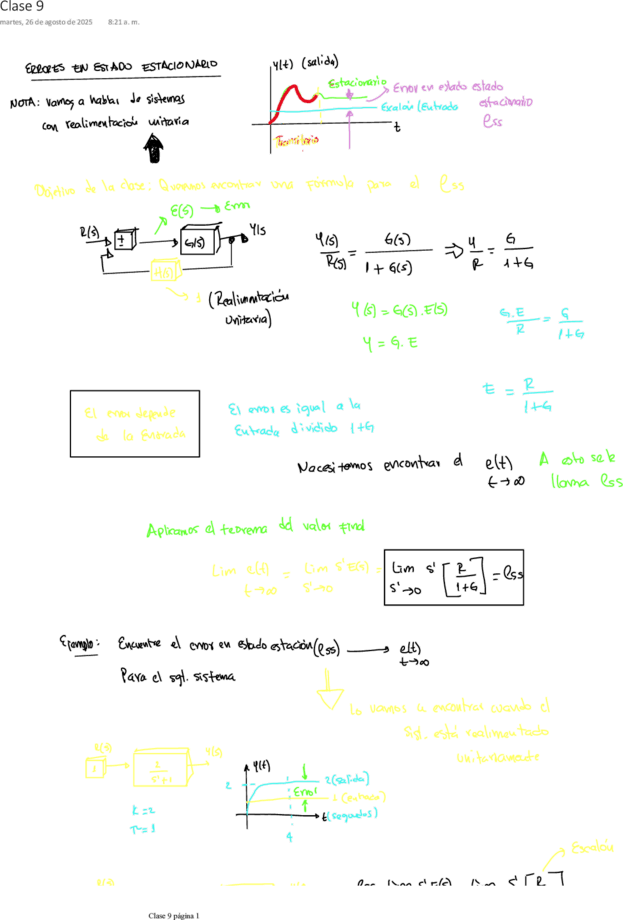 Clase 9
martes, 26 de agosto de 2025 8:21 a. m.
ERRORES EN ESTADO ESTACIONARIO
NOTA: Vamos a hablar de sistemas
con realimentación unitaria
y(t) (salida)
Estacionario
Error en estado estado
estacionario
ess
Escalón (Entrada
t
Transitorio
Objetivo de la clase. Queremos encontrar una formula para el ess
E(s) → Error
R(s)
±
G(s)
Y(s
H(s)
1 (Realimentación
Unitaria)
Y(s)/R(s) = G(s)/(1+G(s)) ⇒ Y/R = G/(1+G)
Y(s) = G(s).E(s)
Y = G.E
G.E/R = G/(1+G)
E = R/(1+G)
El error depende
de la Entrada
El error es igual a la
Entrada dividido 1+G
Necesitamos encontrar el e(t) t→∞
A esto se le
llama ess
Aplicamos el teorema del valor final
Lim e(t) t→∞ = Lim s'E(s) s'→0 = Lim s'→0 s' [R/(1+G)] = ess
Ejemplo: Encuentre el error en estado estación(ess) → e(t) t→∞
Para el sgt. sistema
Lo vamos a encontrar cuando el
sist. está realimentado
unitariamente
R(s)
1
2/(s+1)
Y(s)
K=2
T=1
y(t)
2
2 (salida)
Error
1 (entrada)
t(segundos)
4
Escalón
Clase 9 página 1